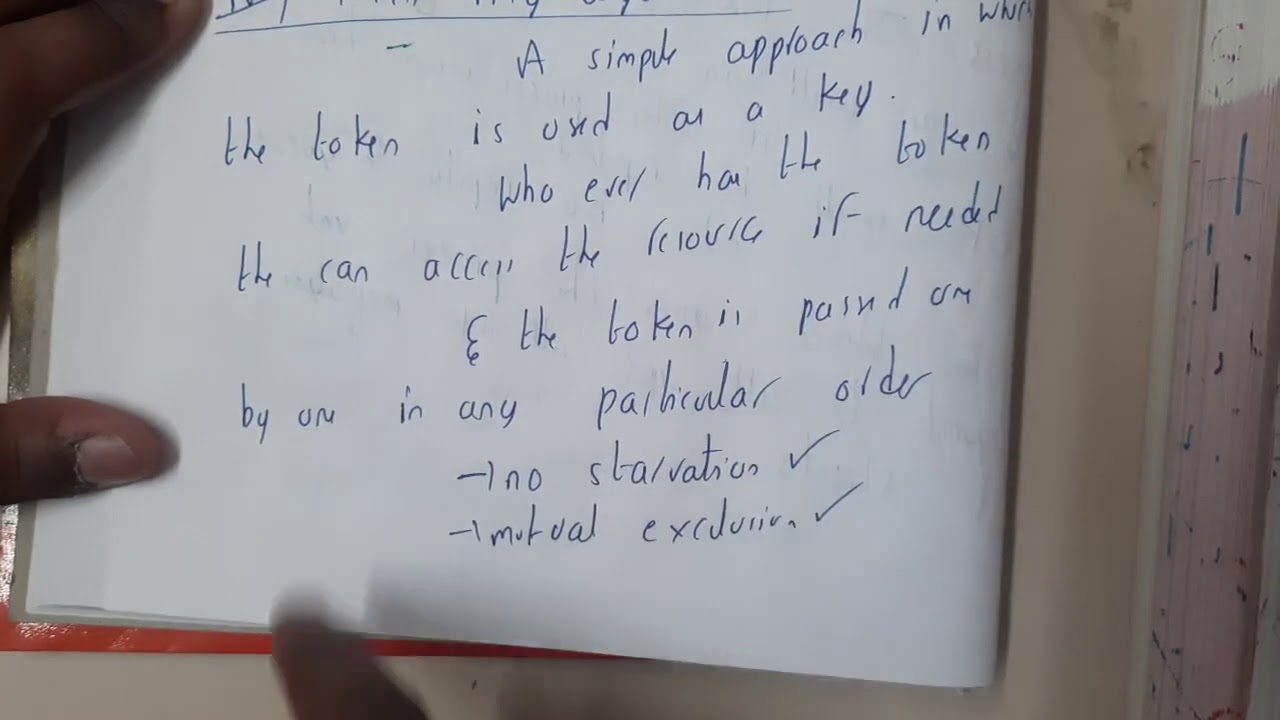 A simple approach in which
the token is used as a key.
who ever has the token
the can access the resource if needed
& the token is passed one
by one in any particular order
→ no starvation ✓
→ mutual exclusion ✓